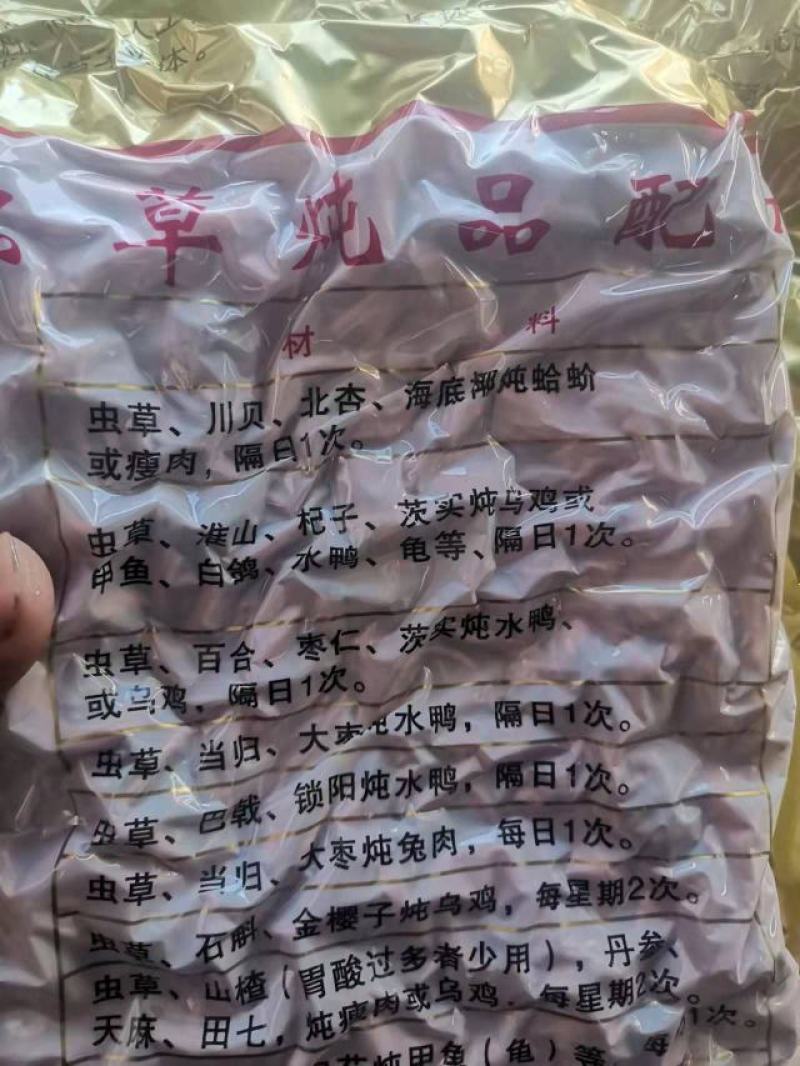 体。
草炖品配
材料
虫草、川贝、北杏、海底椰炖蛤蚧
或瘦肉，隔日1次。
虫草、淮山、杞子、茨实炖乌鸡或
甲鱼、白鸽、水鸭、龟等、隔日1次。
虫草、百合、枣仁、茨实炖水鸭、
或乌鸡，隔日1次。
虫草、当归、大枣炖水鸭，隔日1次。
虫草、巴戟、锁阳炖水鸭，隔日1次。
虫草、当归、大枣炖兔肉，每日1次。
虫草、石斛、金樱子炖乌鸡，每星期2次。
虫草、山楂（胃酸过多者少用），丹参、
天麻、田七，炖瘦肉或乌鸡．每星期2次。
炖甲鱼（龟）等、每
1次。